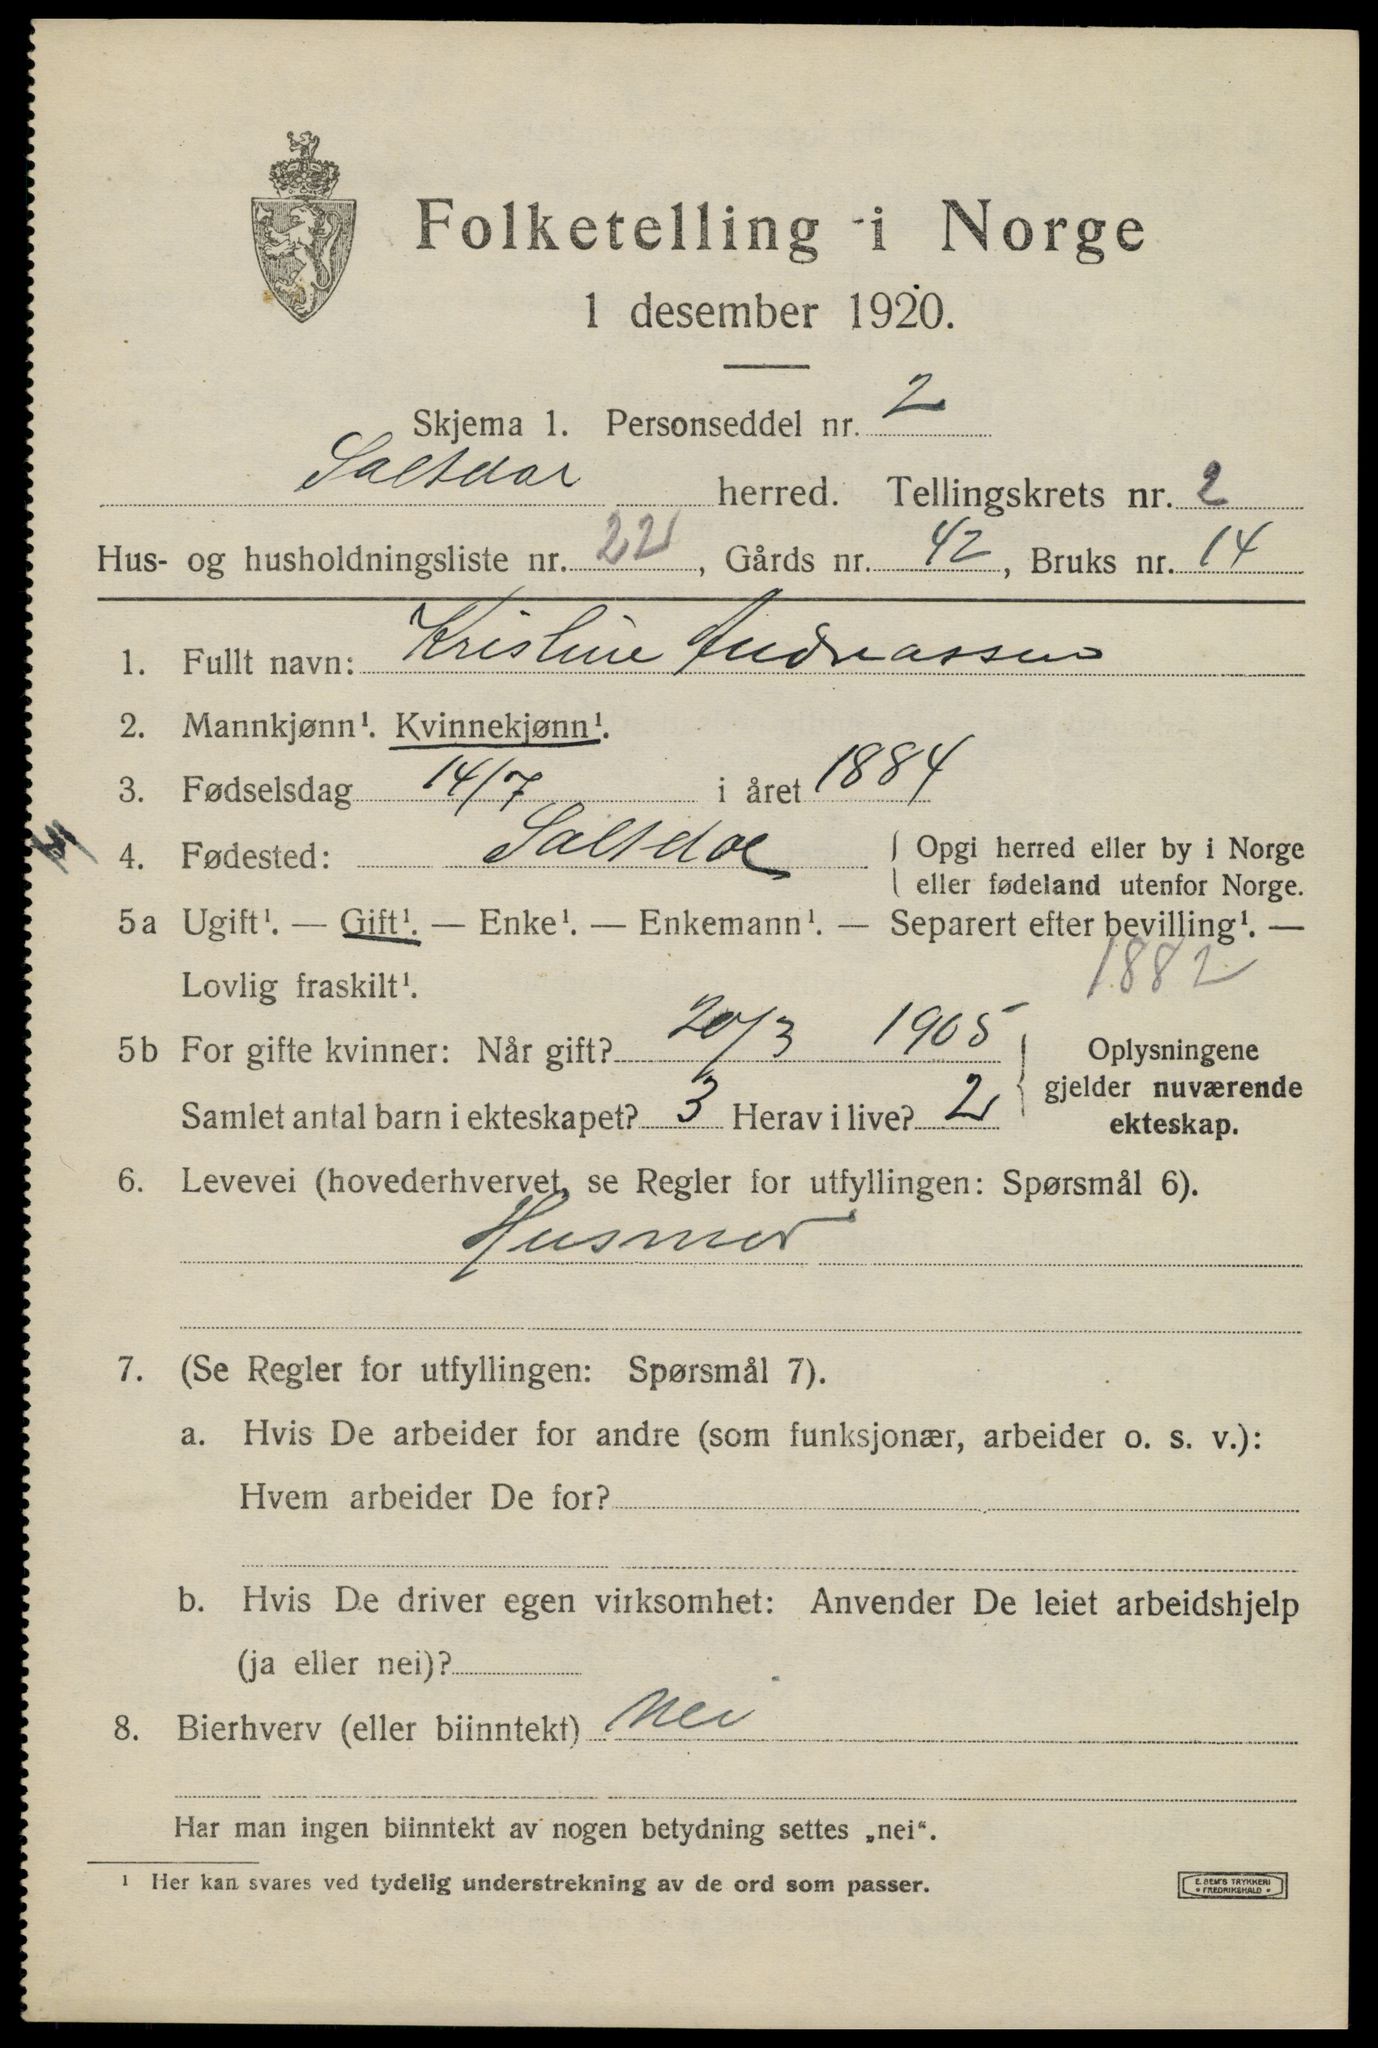 Folketelling i Norge
1 desember 1920.
Skjema 1. Personseddel nr. 2
Saltdal herred. Tellingskrets nr. 2
Hus- og husholdningsliste nr. 22, Gårds nr. 42, Bruks nr. 14
1. Fullt navn: Kristine Andreassen
2. Mannkjønn¹. Kvinnekjønn¹.
3. Fødselsdag 14/7 i året 1884
4. Fødested: Saltdal { Opgi herred eller by i Norge
eller fødeland utenfor Norge.
5a Ugift¹. — Gift¹. — Enke¹. — Enkemann¹. — Separert efter bevilling¹. —
Lovlig fraskilt¹. 1882
5b For gifte kvinner: Når gift? 20/3 1905
Samlet antal barn i ekteskapet? 3 Herav i live? 2
Oplysningene
gjelder nuværende
ekteskap.
6. Levevei (hovederhvervet, se Regler for utfyllingen: Spørsmål 6).
Husmor
7. (Se Regler for utfyllingen: Spørsmål 7).
a. Hvis De arbeider for andre (som funksjonær, arbeider o. s. v.):
Hvem arbeider De for?
b. Hvis De driver egen virksomhet: Anvender De leiet arbeidshjelp
(ja eller nei)?
8. Bierhverv (eller biinntekt) Nei
Har man ingen biinntekt av nogen betydning settes „nei“.
¹ Her kan svares ved tydelig understrekning av de ord som passer.
E. SEM'S TRYKKERI
FREDRIKSHALD